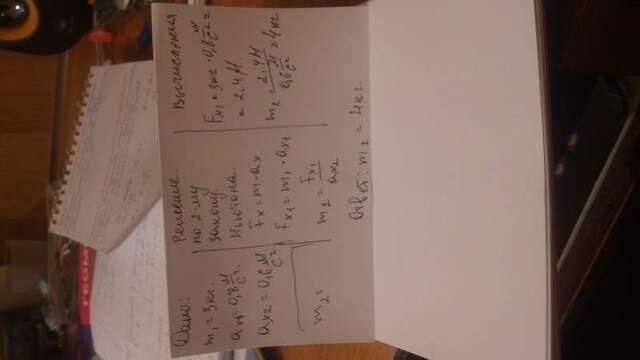 ГЕОМ
Дано:
m₁ = 3кг.
aₓ₁ = 0,8 м/с².
aₓ₂ = 0,6 м/с².
m₂ =
Решение.
по 2-му
закону.
Ньютона.
Fₓ = m · aₓ
Fₓ₁ = m₁ · aₓ₁
m₂ = Fₓ₁/aₓ₂
Вычисления
Fₓ₁ = 3кг · 0,8 м/с² =
= 2,4 Н.
m₂ = 2,4 Н/0,6 м/с² = 4кг.
Ответ: m₂ = 4кг.